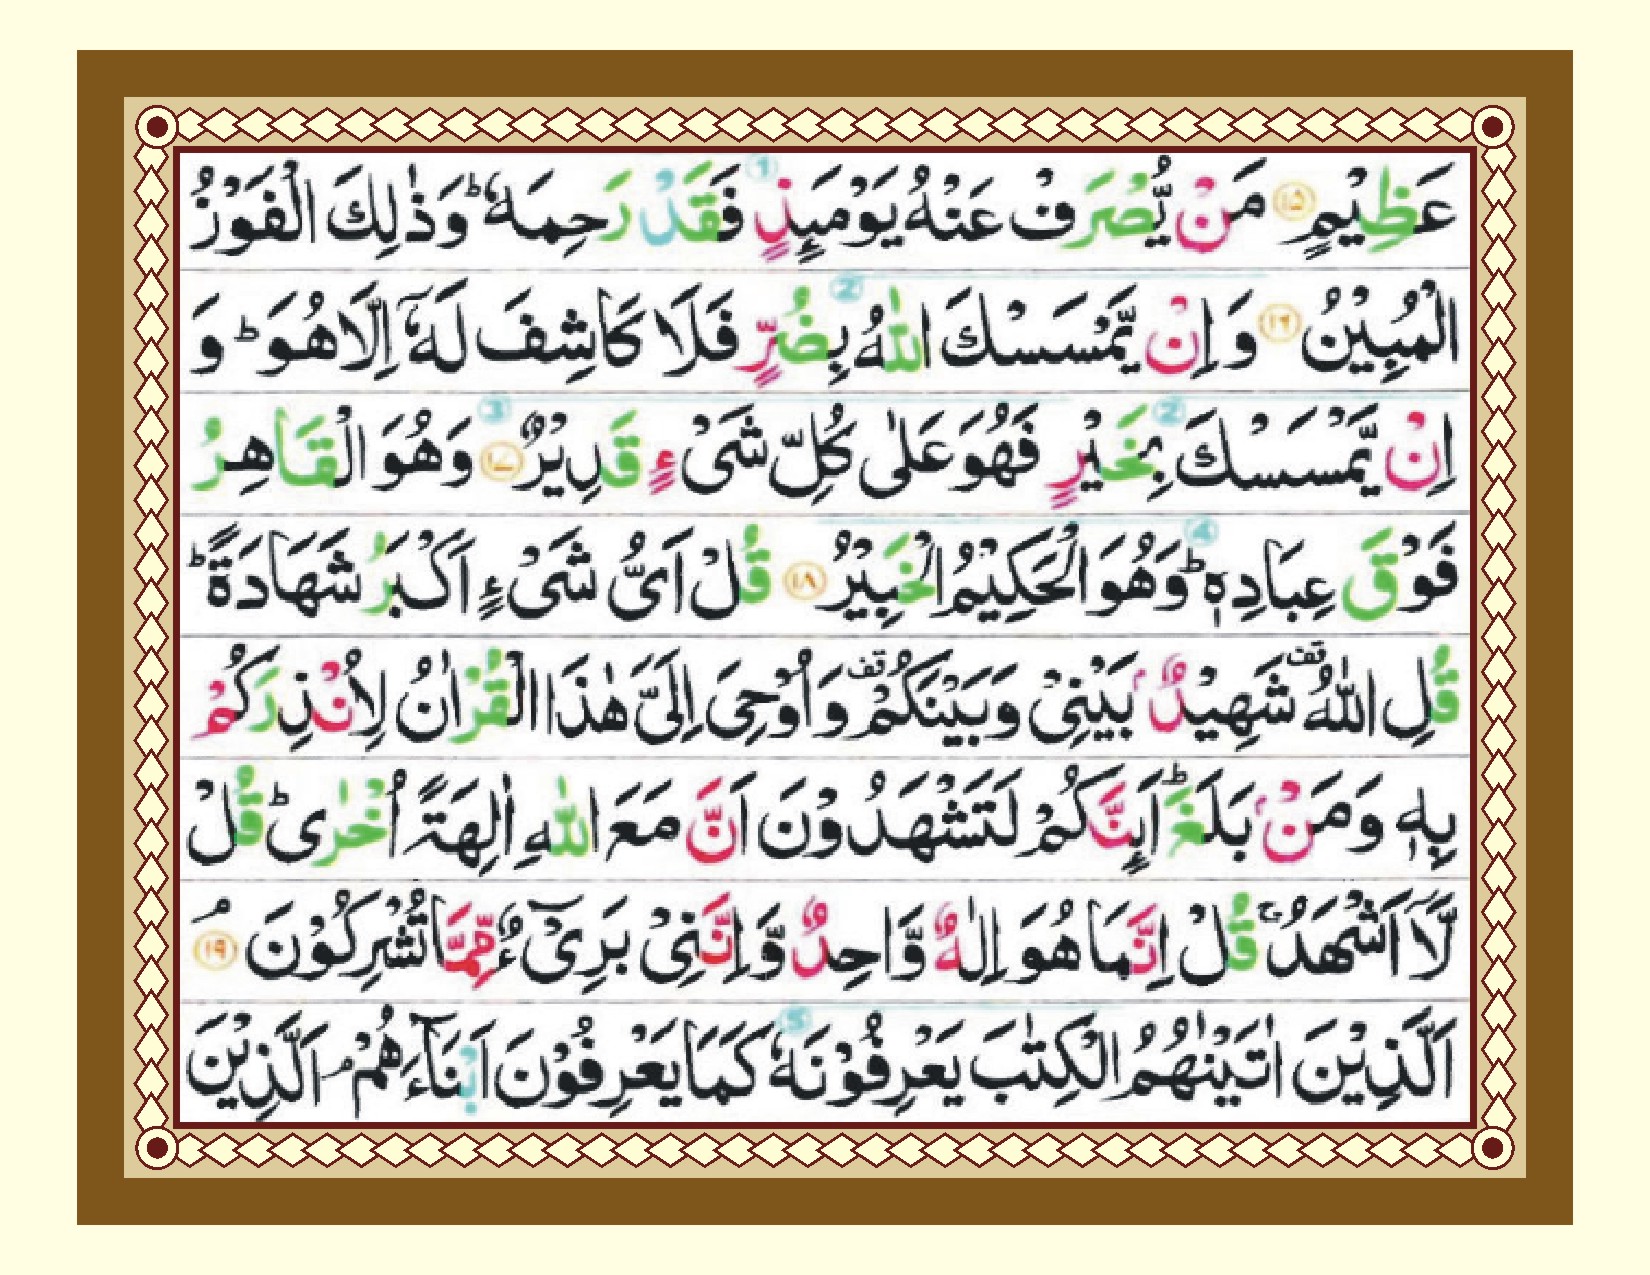 عَظِيْمٍ ۝۱۵ مَنْ يُّصْرَفْ عَنْهُ يَوْمَىِٕذٍ 1 فَقَدْ رَحِمَهٗ ؕ وَذٰلِكَ الْفَوْزُ
الْمُبِيْنُ ۝۱۶ وَ اِنْ يَّمْسَسْكَ اللّٰهُ 2 بِضُرٍّ فَلَا كَاشِفَ لَهٗۤ اِلَّا هُوَ ؕ وَ
اِنْ يَّمْسَسْكَ 2 بِخَيْرٍ فَهُوَ عَلٰى كُلِّ شَىْءٍ قَدِيْرٌ 3 ۝۱۷ وَهُوَ الْقَاهِرُ
فَوْقَ عِبَادِهٖ ؕ 4 وَهُوَ الْحَكِيْمُ الْخَبِيْرُ ۝۱۸ قُلْ اَىُّ شَىْءٍ اَكْبَرُ شَهَادَةً ؕ
قُلِ اللّٰهُ قف شَهِيْدٌۢ بَيْنِىْ وَبَيْنَكُمْ قف وَاُوْحِىَ اِلَىَّ هٰذَا الْقُرْاٰنُ لِاُنْذِرَكُمْ
بِهٖ وَمَنْۢ بَلَغَ ؕ اَىِٕنَّكُمْ لَتَشْهَدُوْنَ اَنَّ مَعَ اللّٰهِ اٰلِهَةً اُخْرٰى ؕ قُلْ
لَّاۤ اَشْهَدُ ۚ قُلْ اِنَّمَا هُوَ اِلٰهٌ وَّاحِدٌ وَّاِنَّنِىْ بَرِىْٓءٌ مِّمَّا تُشْرِكُوْنَ ۘ ۝۱۹
اَلَّذِيْنَ اٰتَيْنٰهُمُ الْكِتٰبَ يَعْرِفُوْنَهٗ 5 كَمَا يَعْرِفُوْنَ اَبْنَآءَهُمْ ۘ اَلَّذِيْنَ